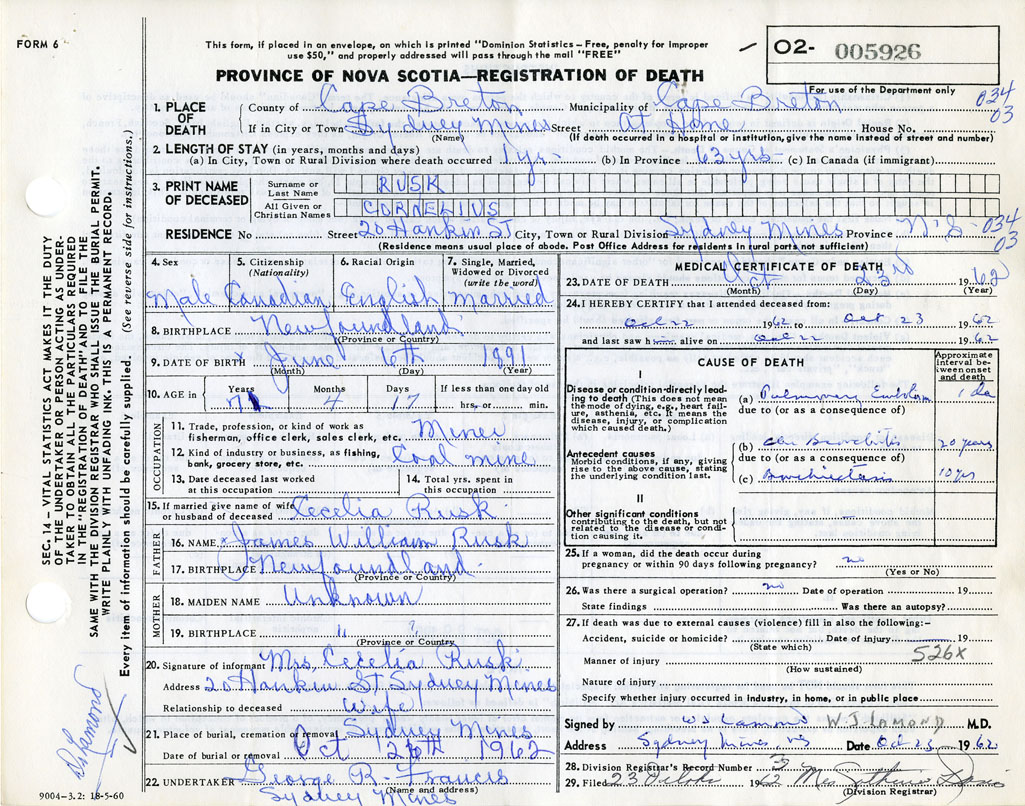 FORM 6
This form, if placed in an envelope, on which is printed "Dominion Statistics – Free, penalty for improper
use $50," and properly addressed will pass through the mail "FREE"
02- 005926
For use of the Department only
PROVINCE OF NOVA SCOTIA—REGISTRATION OF DEATH
034
03
1. PLACE OF DEATH
County of Cape Breton Municipality of Cape Breton
If in City or Town Sydney Mines Street At Home House No.
(Name) (If death occurred in a hospital or institution, give the name instead of street and number)
2. LENGTH OF STAY (in years, months and days)
(a) In City, Town or Rural Division where death occurred 1 yr. (b) In Province 63 yrs (c) In Canada (if immigrant)
3. PRINT NAME OF DECEASED
Surname or Last Name RUSK
All Given or Christian Names CORNELIUS
RESIDENCE No Street 20 Hankin St City, Town or Rural Division Sydney Mines Province N.S 034
03
(Residence means usual place of abode. Post Office Address for residents in rural parts not sufficient)
4. Sex
Male
5. Citizenship
(Nationality)
Canadian
6. Racial Origin
English
7. Single, Married,
Widowed or Divorced
(write the word)
Married
8. BIRTHPLACE Newfoundland
(Province or Country)
9. DATE OF BIRTH x June 6th 1891
(Month) (Day) (Year)
10. AGE in
Years Months Days If less than one day old
4 17 hrs. or min.
OCCUPATION
11. Trade, profession, or kind of work as
fisherman, office clerk, sales clerk, etc. Miner
12. Kind of industry or business, as fishing,
bank, grocery store, etc. Coal mine
13. Date deceased last worked
at this occupation
14. Total yrs. spent in
this occupation
15. If married give name of wife
or husband of deceased Cecelia Rusk
FATHER
16. NAME x James William Rusk
17. BIRTHPLACE Newfoundland
(Province or Country)
MOTHER
18. MAIDEN NAME Unknown
19. BIRTHPLACE " ?
(Province or Country)
20. Signature of informant Mrs. Cecelia Rusk
Address 20 Hankin St Sydney Mines
Relationship to deceased Wife
21. Place of burial, cremation or removal Sydney Mines
Date of burial or removal Oct 26th 1962
22. UNDERTAKER George R. Francis
(Name and address)
Sydney Mines
9004-3.2: 18-5-60
MEDICAL CERTIFICATE OF DEATH
23. DATE OF DEATH Oct 23rd 1962
(Month) (Day) (Year)
24. I HEREBY CERTIFY that I attended deceased from:
Oct 22 1962 to Oct 23 1962
and last saw him alive on Oct 22 1962
CAUSE OF DEATH
Approximate interval between onset and death
I
Disease or condition directly leading to death (This does not mean the mode of dying, e.g., heart failure, asthenia, etc. It means the disease, injury, or complication which caused death.)
(a) Pulmonary Embolism 1 da
due to (or as a consequence of)
Antecedent causes
Morbid conditions, if any, giving rise to the above cause, stating the underlying condition last.
(b) Chr Bronchitis 20 years
due to (or as a consequence of)
(c) Bronchiectasis 10 yrs
II
Other significant conditions
contributing to the death, but not related to the disease or condition causing it. —
25. If a woman, did the death occur during
pregnancy or within 90 days following pregnancy? no
(Yes or No)
26. Was there a surgical operation? no Date of operation 19
State findings Was there an autopsy?
27. If death was due to external causes (violence) fill in also the following:–
Accident, suicide or homicide? Date of injury 19
(State which)
526X
Manner of injury
(How sustained)
Nature of injury
Specify whether injury occurred in industry, in home, or in public place
Signed by WJ Lamond W.J. LAMOND M.D.
Address Sydney Mines, NS Date Oct 23 1962
28. Division Registrar's Record Number
29. Filed 23 October 1962 Mrs
(Division Registrar)
SEC. 14 – VITAL STATISTICS ACT MAKES IT THE DUTY
OF THE UNDERTAKER OR PERSON ACTING AS UNDER-
TAKER TO OBTAIN ALL THE PARTICULARS REQUIRED
IN THE "REGISTRATION OF DEATH" AND TO FILE THE
SAME WITH THE DIVISION REGISTRAR WHO SHALL ISSUE THE BURIAL PERMIT.
WRITE PLAINLY WITH UNFADING INK. THIS IS A PERMANENT RECORD.
Every item of information should be carefully supplied. (See reverse side for instructions.)
Lamond